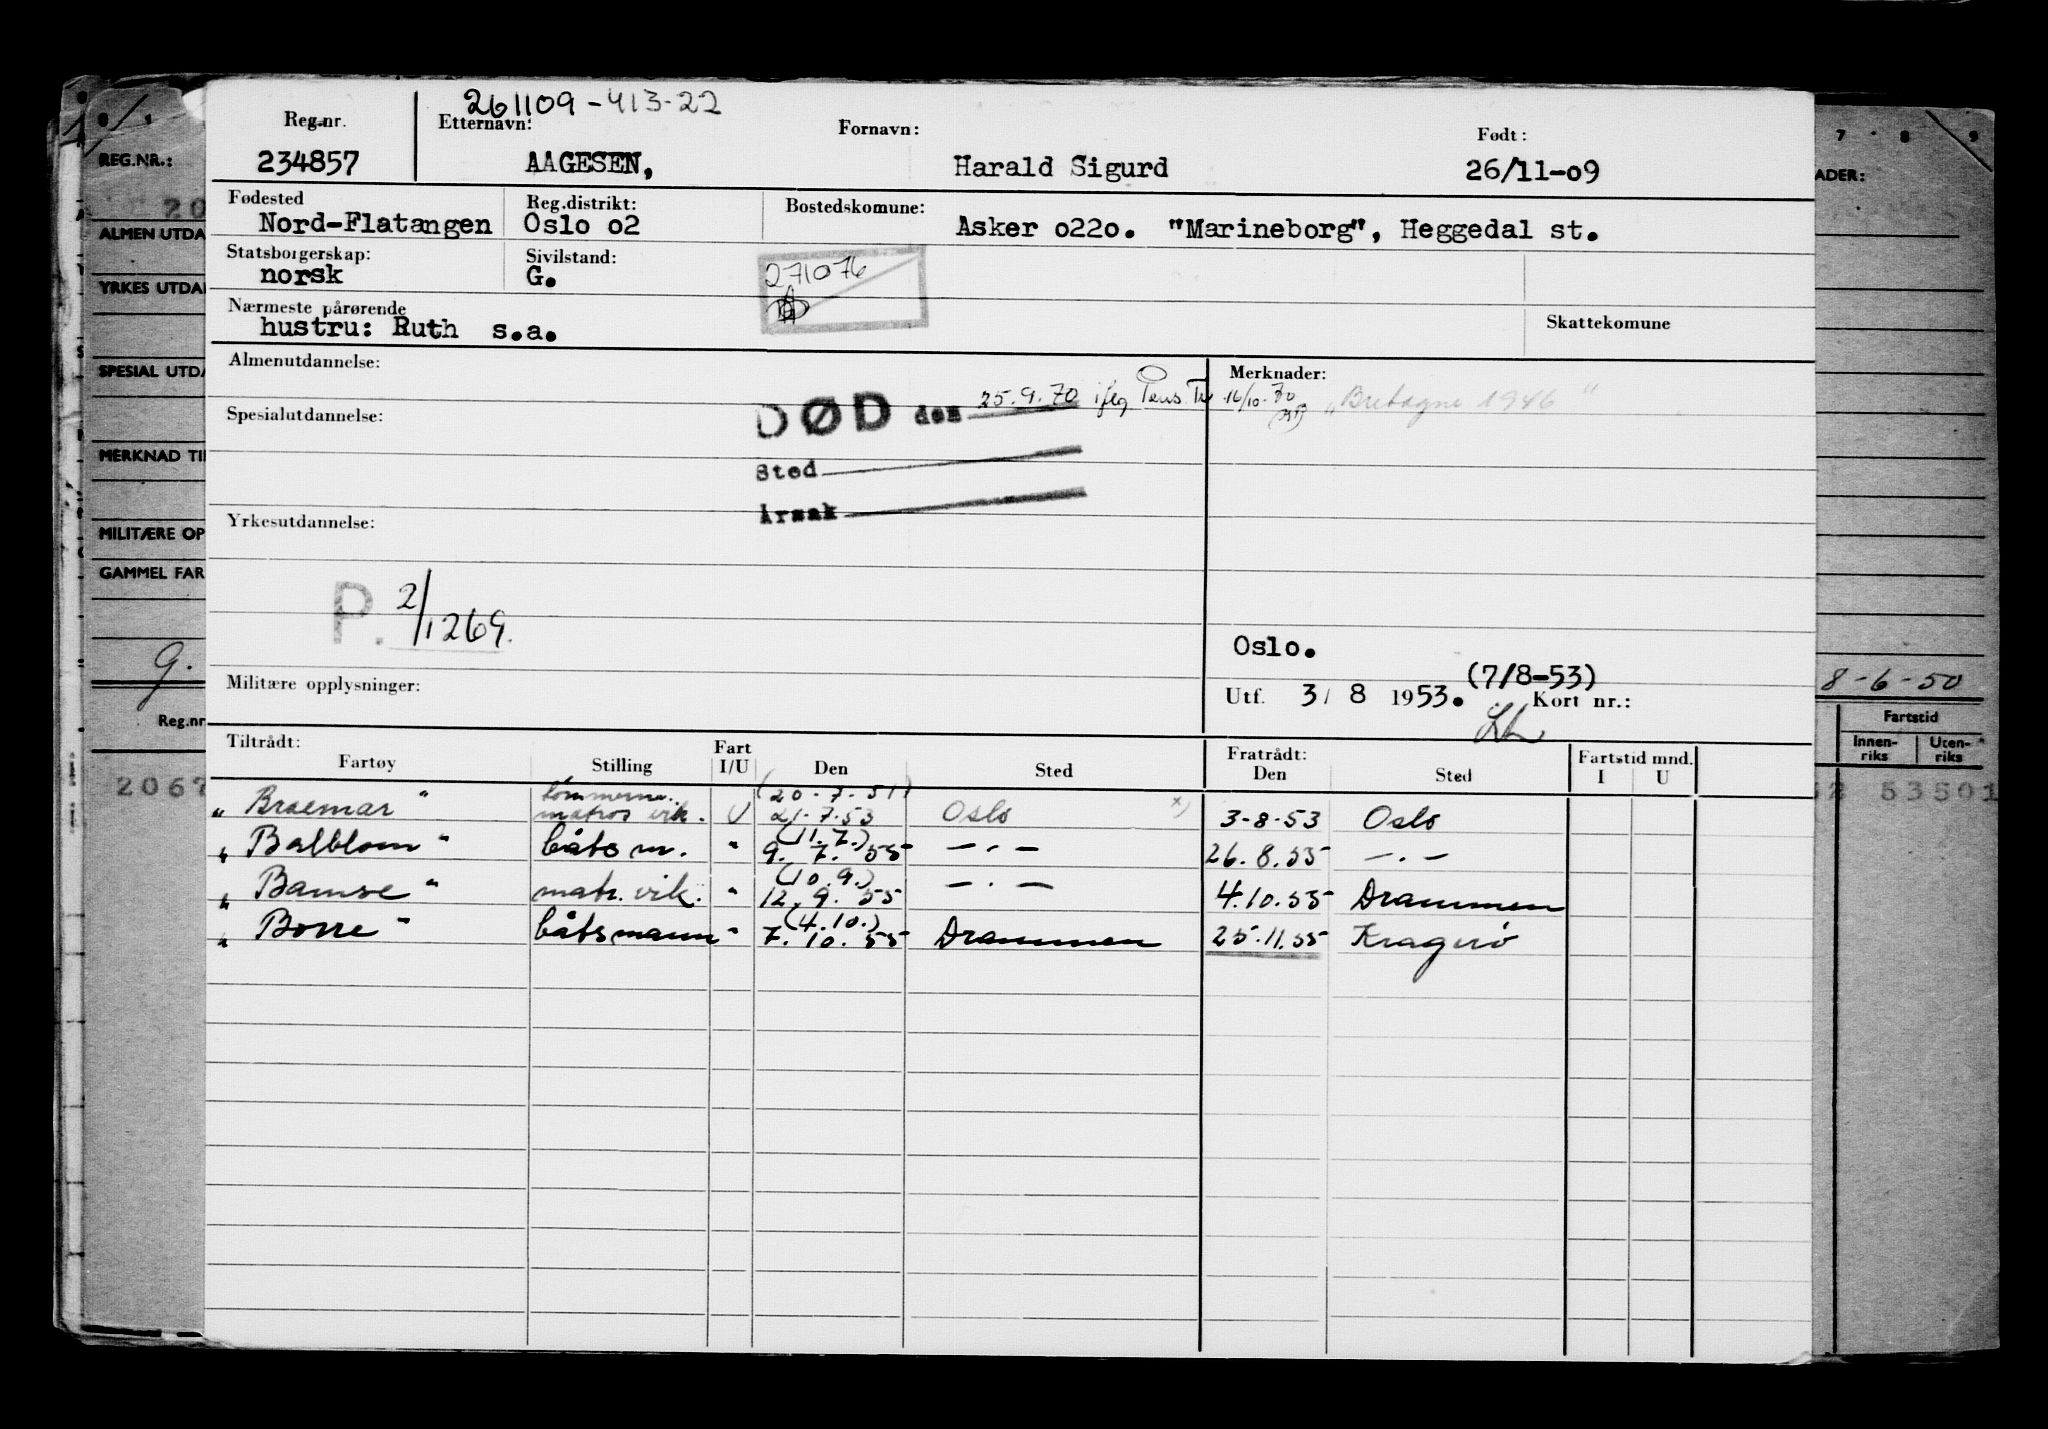 261109-413-22
Reg.nr. Etternavn: Fornavn: Født:
234857 AAGESEN, Harald Sigurd 26/11-09
Fødested Reg.distrikt: Bostedskomune:
Nord-Flatangen Oslo 02 Asker 0220. "Marineborg", Heggedal st.
Statsborgerskap: Sivilstand:
norsk G. 271076
Nærmeste pårørende Skattekomune
hustru: Ruth s.a.
Almenutdannelse: Merknader:
DØD den 25.9.70 iflg 16/10-70 "Bretagne 1946"
Spesialutdannelse:
Sted
Årsak
Yrkesutdannelse:
P. 2/1269.
Oslo.
(7/8-53)
Militære opplysninger: Utf. 3/8 1953. Kort nr.:
Tiltrådt: Fart Fratrådt: Fartstid mnd.
Fartøy Stilling I/U Den Sted Den Sted I U
(20-7-51)
"Braemar" matros vik. U 21.7.53 Oslo x) 3-8-53 Oslo
(11.7.)
"Balblom" båtsm. " 9. 7. 55 —.— 26.8.55 —.—
(10.9.)
"Bamse" matr. vik. " 12.9.55 —.— 4.10.55 Drammen
(4.10.)
"Borre" båtsmann " 7.10.55 Drammen 25.11.55 Kragerø
REG.NR.:
20
ALMEN UTDA
YRKES UTDA
SPESIAL UTDA
MERKNAD TI
MILITÆRE OP
GAMMEL FAR
g.
Reg.nr
2067
7 8 9
ADER:
8-6-50
Fartstid
Innen-riks Uten-riks
52 53501